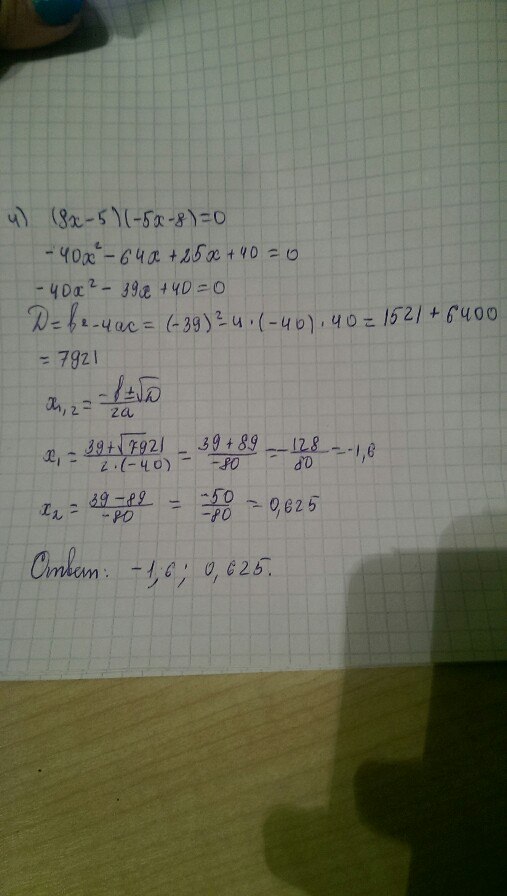 4) (8x-5)(-5x-8)=0
-40x²-64x+25x+40=0
-40x²-39x+40=0
D=b²-4ac=(-39)²-4·(-40)·40=1521+6400
=7921
x₁,₂=(-b±√D)/2a
x₁=(39+√7921)/(2·(-40))=(39+89)/-80=-128/80=-1,6
x₂=(39-89)/-80=-50/-80=0,625
Ответ: -1,6; 0,625.